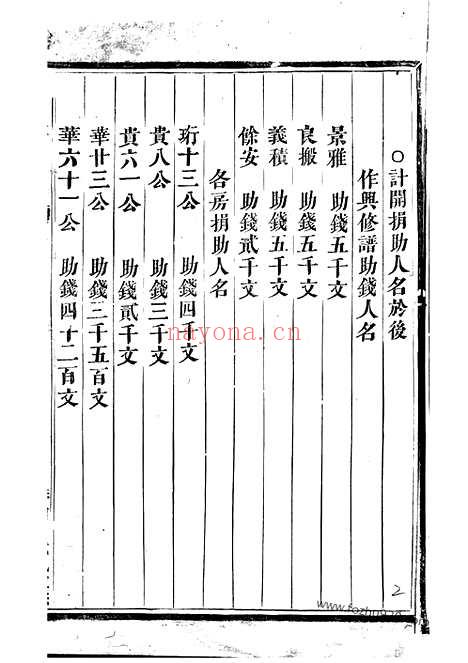 ○計開捐助人名於後
作興修譜助錢人名
景雅 助錢五千文
良搬 助錢五千文
義積 助錢五千文
餘安 助錢貳千文
各房捐助人名
珩十三公 助錢四千文
貴八公 助錢三千文
貴六一公 助錢貳千文
華廿三公 助錢三千五百文
華六十一公 助錢四十二百文
2
nayona.cn